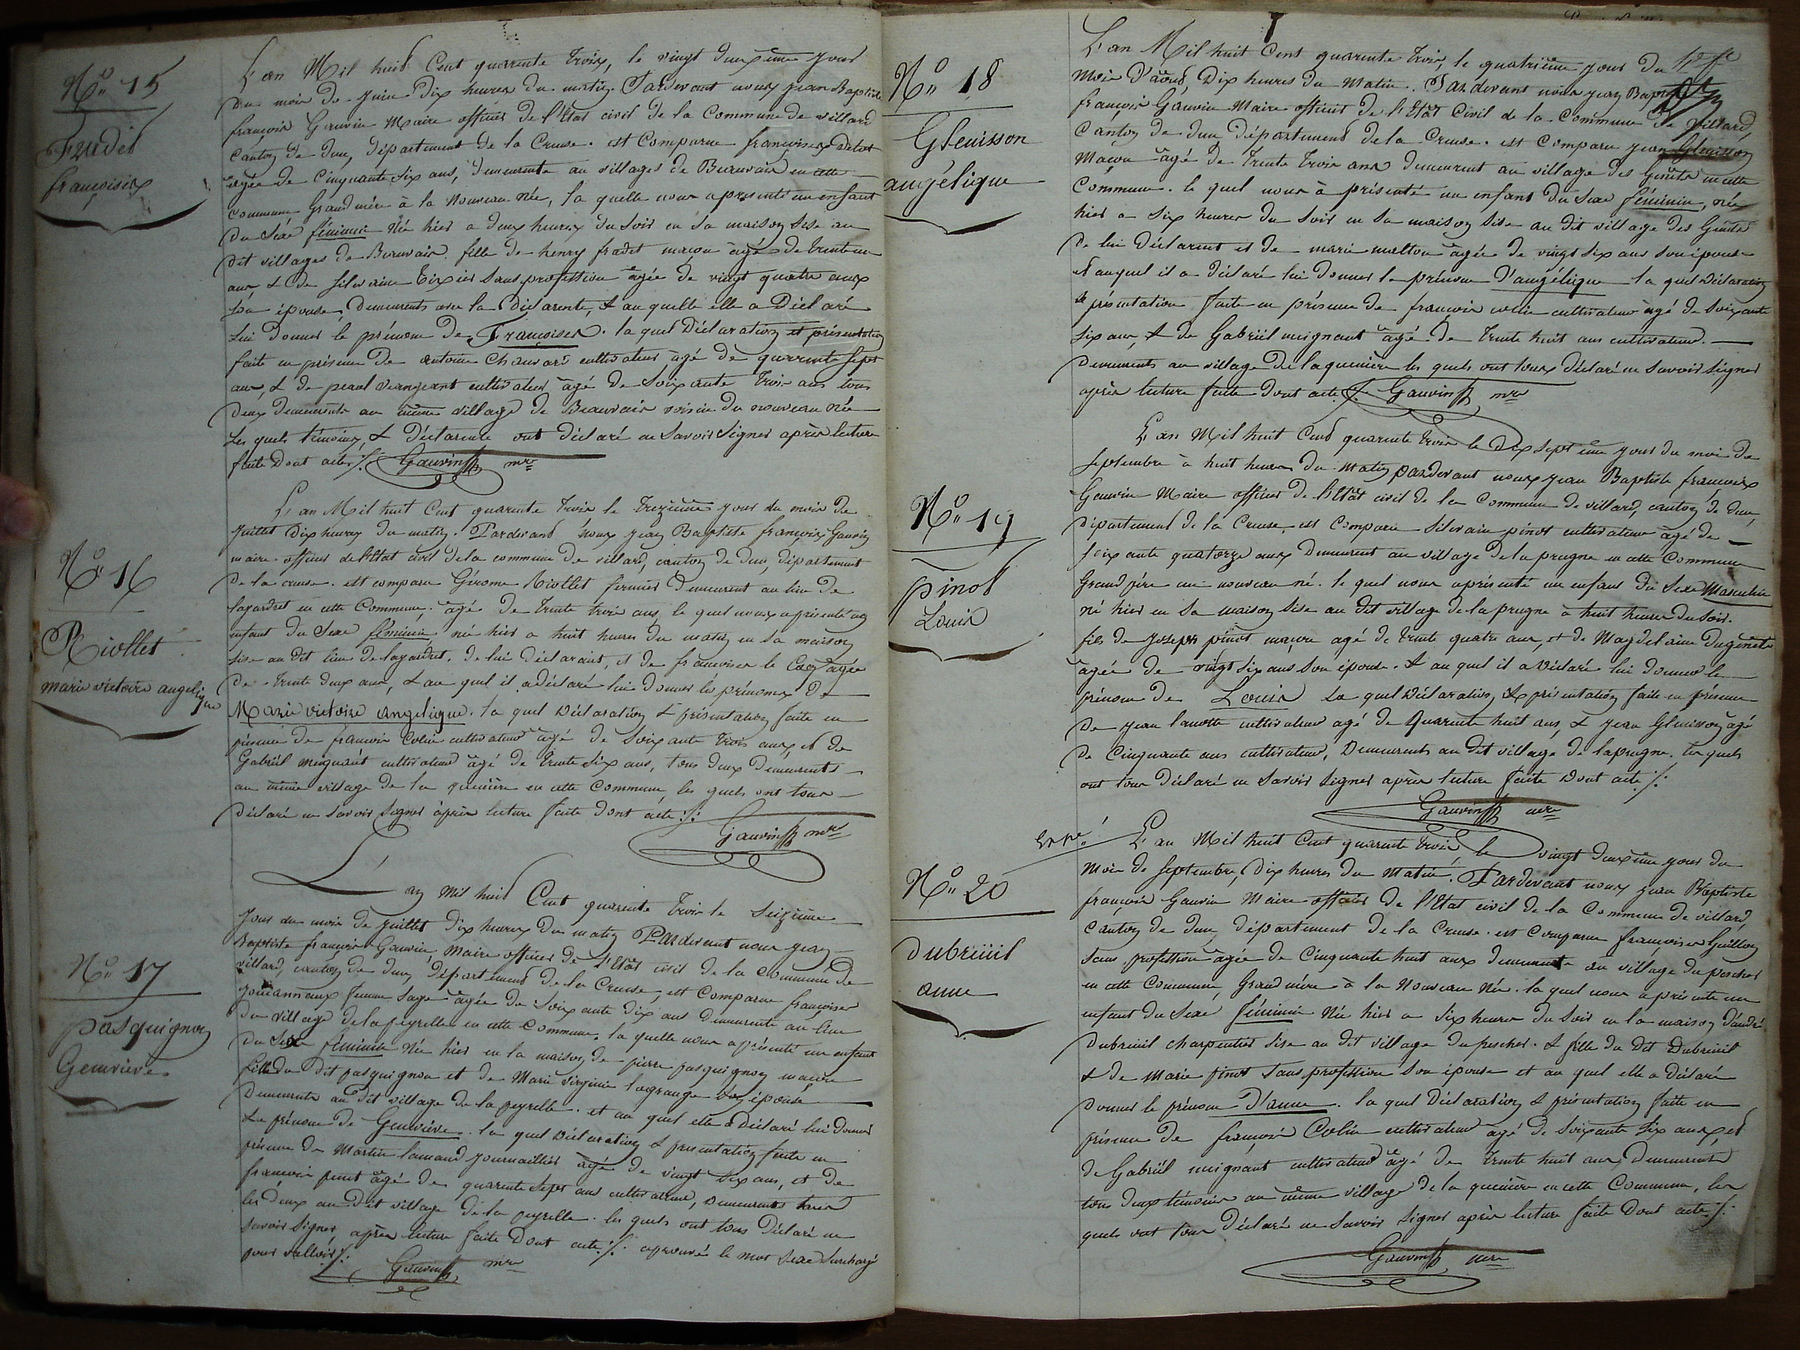 N° 15
Fradet
françoise
L'an Mil huit Cent quarante trois, le vingt deuxième jour
du mois de juin dix heures du matin. Pardevant nous jean Baptiste
françois Gauvin Maire officier de l'Etat civil de la Commune de Villard
canton de dun, département de la Creuse. est comparue françoise
agée de cinquante six ans, demeurante au villages de Beauvais en cette
commune Grand mère à la nouveau née, la quelle nous a présenté un enfant
du sexe féminin née hier a deux heures du soir en sa maison sise au
dit villages de Beauvais, fille de henry fradet maçon agé de trente un
ans, & de silvaine Tixier sans profession agée de vingt quatre ans
son épouse, demeurants avec la déclarente, & au quelle elle a Déclaré
lui donner le prénom de Françoise. la quel déclaration et présentation
faite en présence de antoine Chauvard cultivateur agé de quarente sept
ans, & de cultivateur agé de soixante trois ans tous
deux demeurants au même village de Beauvais voisin du nouveau née
les quels témoins, & Déclarente ont déclaré ne savoir signer après lecture
faite dont acte ./. Gauvin mre
N° 16
Riollet
marie victoire angelique
L'an Mil huit Cent quarante trois le treizième jour du mois de
juillet dix heures du matin. Pardevant nous jean Baptiste françois Gauvin
maire officier de l'Etat civil de la commune de villard, canton de dun, département
de la creuse. est comparu Girome Riollet fermier demeurant au lieu de
en cette Commune. agé de trente trois ans, le quel nous a présenté un
enfant du sexe féminin née hier a huit heures du matin, en sa maison
sise au dit lieu de de lui déclarant, et de françoise le agée
de trente deux ans, & au quel il a déclaré lui donner les prénoms de
Marie victoire angelique. la quel Déclaration & présentation faite en
présence de françois Colin cultivateur agé de soixante trois ans, et de
Gabriël meignant cultivateur agé de trente six ans, tous deux demeurants
au même village de la queuière en cette commune, les quels ont tous
déclaré ne savoir signer après lecture faite dont acte ./.
Gauvin mre
N° 17
pasquignon
Genevieve
L'an Mil huit Cent quarente trois le Seizième
jour du mois de juillet dix heures du matin Pardevant nous jean
Baptiste françois Gauvin, Maire officier de l'Etat civil de la commune de
villard, canton de dun, département de la Creuse, est comparue françoise
femme sage agée de soixante dix ans demeurante au lieu
du village de la peyrelle en cette commune, la quelle nous a présenté un enfant
du sexe féminin née hier en la maison de pierre pasquignon maçon
fille du dit pasquignon et de Marie virginie lagrange son épouse
demeurants au dit village de la peyrelle. et au quel elle a Déclaré lui donner
le prénom de Geneviève. la quel Déclaration & présentation faite en
présence de Martin lamaud journaillier agé de vingt six ans, et de
françois pinot agé de quarente sept ans cultivateur, demeurants tous
les deux au dit village de la peyrelle. les quels ont tous Déclaré ne
savoir signer après lecture faite dont acte ./. aprouvée le mot sexe surchargé
pour valloir ./.
Gauvin mre
N° 18
Gleuisson
angélique
L'an Mil huit Cent quarente trois, le quatrième jour du
mois d'août, Dix heures du Matin. Pardevant nous jean Baptiste
françois Gauvin Maire officier de l'Etat Civil de la Commune de Villard,
Canton de dun Département de la Creuse. est comparu jean Gleuisson
Maçon agé de trente trois ans demeurant au village des Genêts en cette
commune. le quel nous à présenté un enfant du sexe féminin, née
hier a six heures du soir en sa maison sise au dit village des Genêts
de lui déclarant et de marie agée de vingt six ans son épouse
& auquel il a déclaré lui donner le prénom D'angélique la quel Déclaration
& présentation faite en présence de françois colin cultivateur agé de soixante
six ans & de Gabriël meignant agé de trente huit ans cultivateur.
demeurants au village de la queuière les quels ont tous déclaré ne savoir signer
après lecture faite dont acte ./. Gauvin mre
N° 19
pinot
Louis
L'an Mil huit Cent quarente trois le Dix sept ième jour du mois de
septembre à huit heures du matin pardevant nous jean Baptiste françois
Gauvin Maire officier de l'Etat civil de la commune de villard, canton de dun,
département de la Creuse, est comparu silvain pinot cultivateur agé de
soixante quatorze ans demeurant au village de la prugne en cette Commune
Grand père au nouveau né. le quel nous a présenté un enfant du sexe Masculin
né hier en sa maison sise au dit village de la prugne à huit heures du soir.
fils de Joseph pinot, maçon agé de trente quatre ans, et de Magdelaine Dugenêt
agée de vingt six ans son épouse. & au quel il a Déclaré lui donner le
prénom de Louis la quel Déclaration & présentation faite en présence
de jean lamotte cultivateur agé de Quarente huit ans, & jean Gleuisson agé
de cinquante ans cultivateur, demeurants au dit village de laprugne. les quels
ont tous Déclaré ne savoir signer après lecture faite dont acte ./.
Gauvin mre
N° 20
Dubreüil
anne
L'an Mil huit Cent quarente trois le vingt deuxième jour du
mois de septembre, Dix heures du Matin. Pardevant nous jean Baptiste
françois Gauvin Maire officier de l'Etat civil de la Commune de villard,
Canton de dun, département de la Creuse. est comparue françoise Guillon
sans profession agée de cinquante huit ans demeurante au village du pescher
en cette commune, Grand mère à la Nouveau Née. la quel nous a présenté un
enfant du sexe féminin Née hier a six heures du soir en la maison d'andré
Dubreuil charpentier sise au dit village du pescher. & fille du dit Dubreuil
& de Marie pinot sans profession son épouse et au quel elle a déclaré
donner le prénom D'anne. la quel Déclaration & présentation faite en
présence de françois Colin cultivateur agé de soixante six ans, et
de Gabriël meignant cultivateur agé de trente huit ans demeurants
tous deux témoins au même village de la queuière en cette commune, les
quels ont tous déclaré ne savoir signer après lecture faite dont acte ./.
Gauvin mre